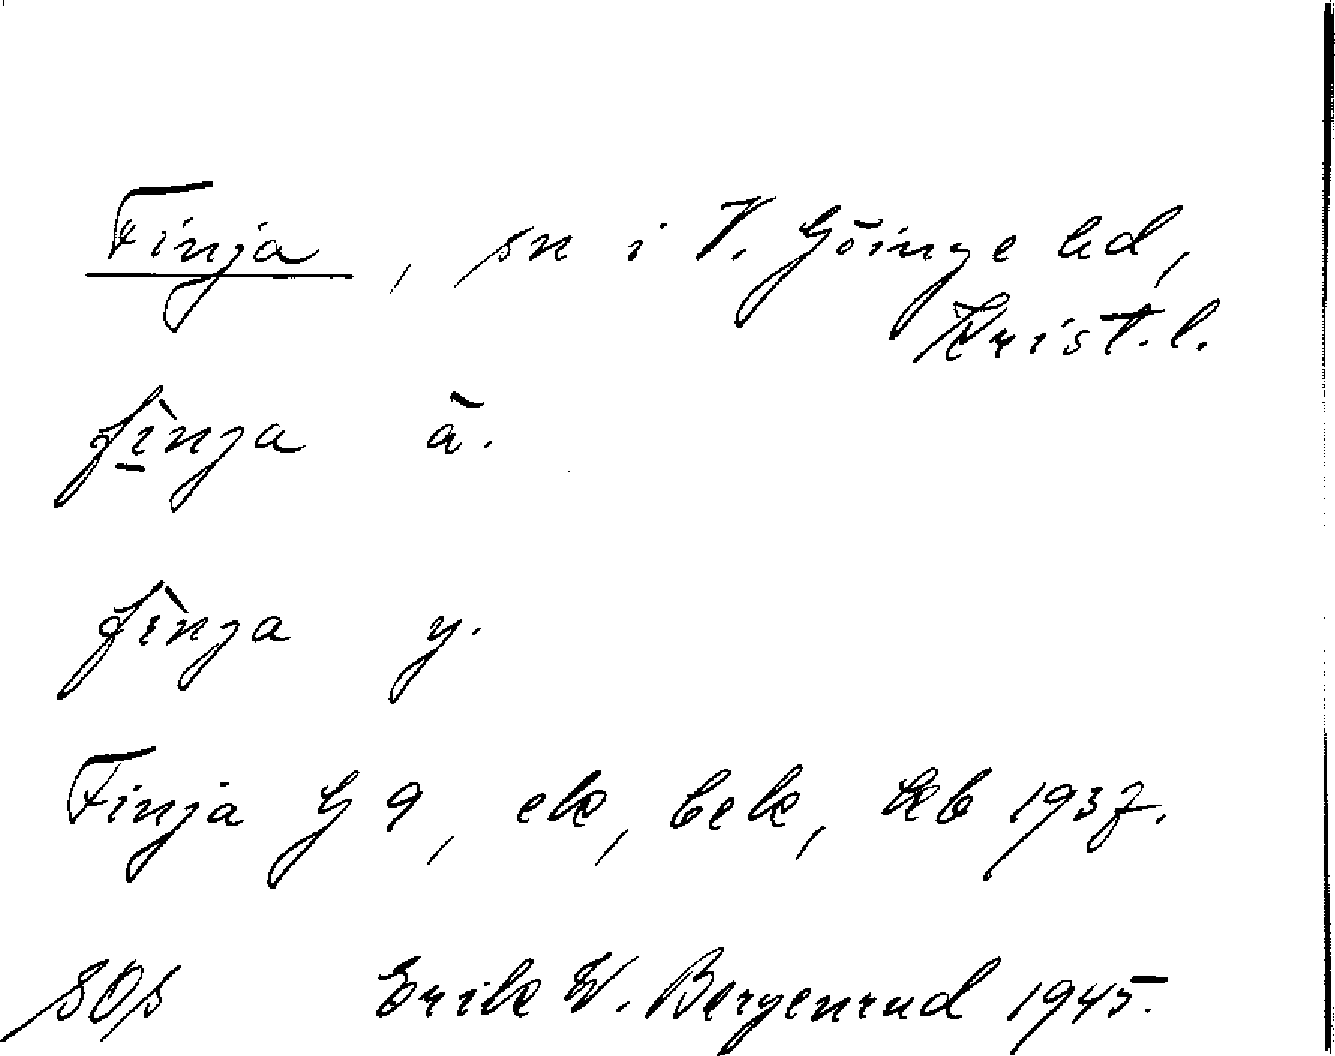 Finja, sn i V. Göinge hd,
Krist. l.
fìnja ä.
fìnja y.
Finja G 9, ek, bek, kb 1937.
SOS Erik W. Bergenrud 1945.